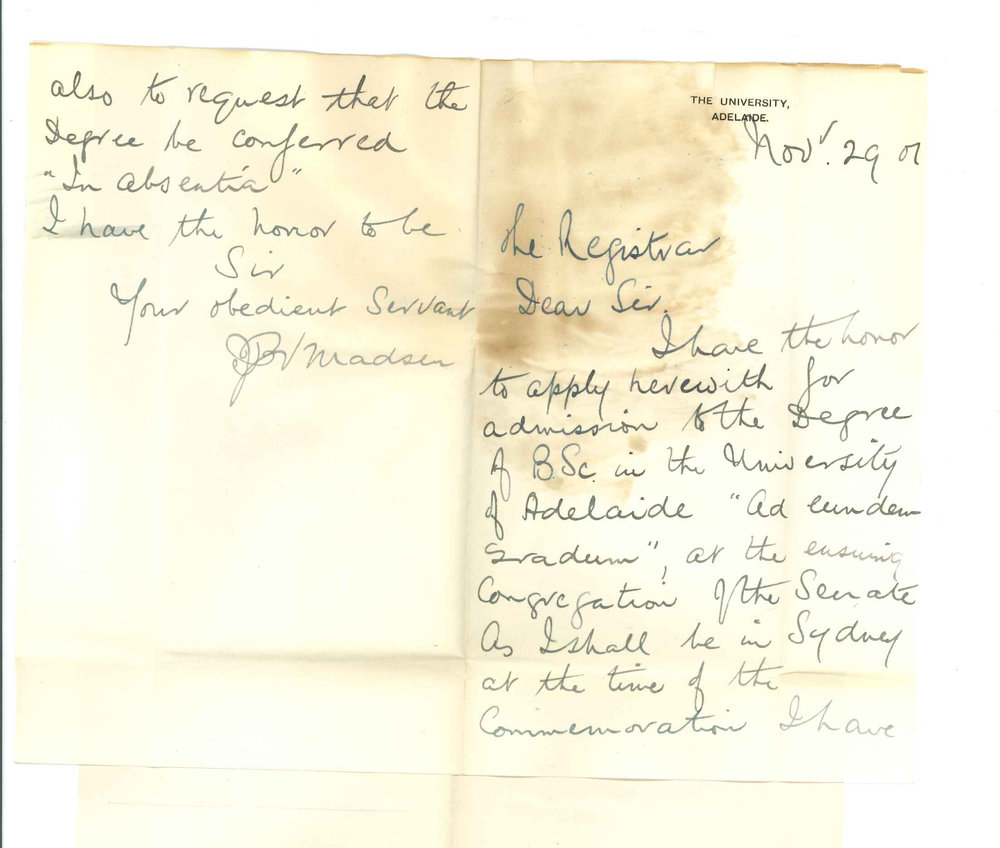 THE UNIVERSITY,
ADELAIDE.
Nov'. 29 01
The Registrar
Dear Sir.
I have the honor
to apply herewith for
admission to the Degree
of B.Sc. in the University
of Adelaide "Ad eundem
gradum", at the ensuing
Congregation of the Senate
As I shall be in Sydney
at the time of the
Commemoration I have
also to request that the
Degree be conferred
"In absentia"
I have the honor to be
Sir
Your obedient Servant
JPV Madsen